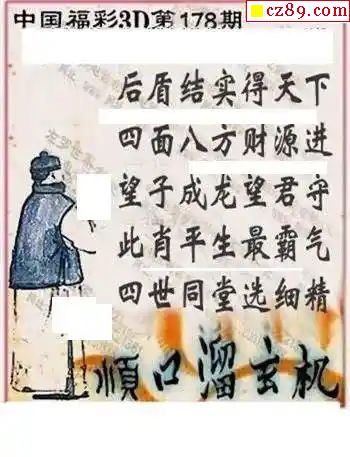 中国福彩3D第178期
cz89.com
后盾结实得天下
四面八方财源进
望子成龙望君守
此肖平生最霸气
四世同堂选细精
顺口溜玄机